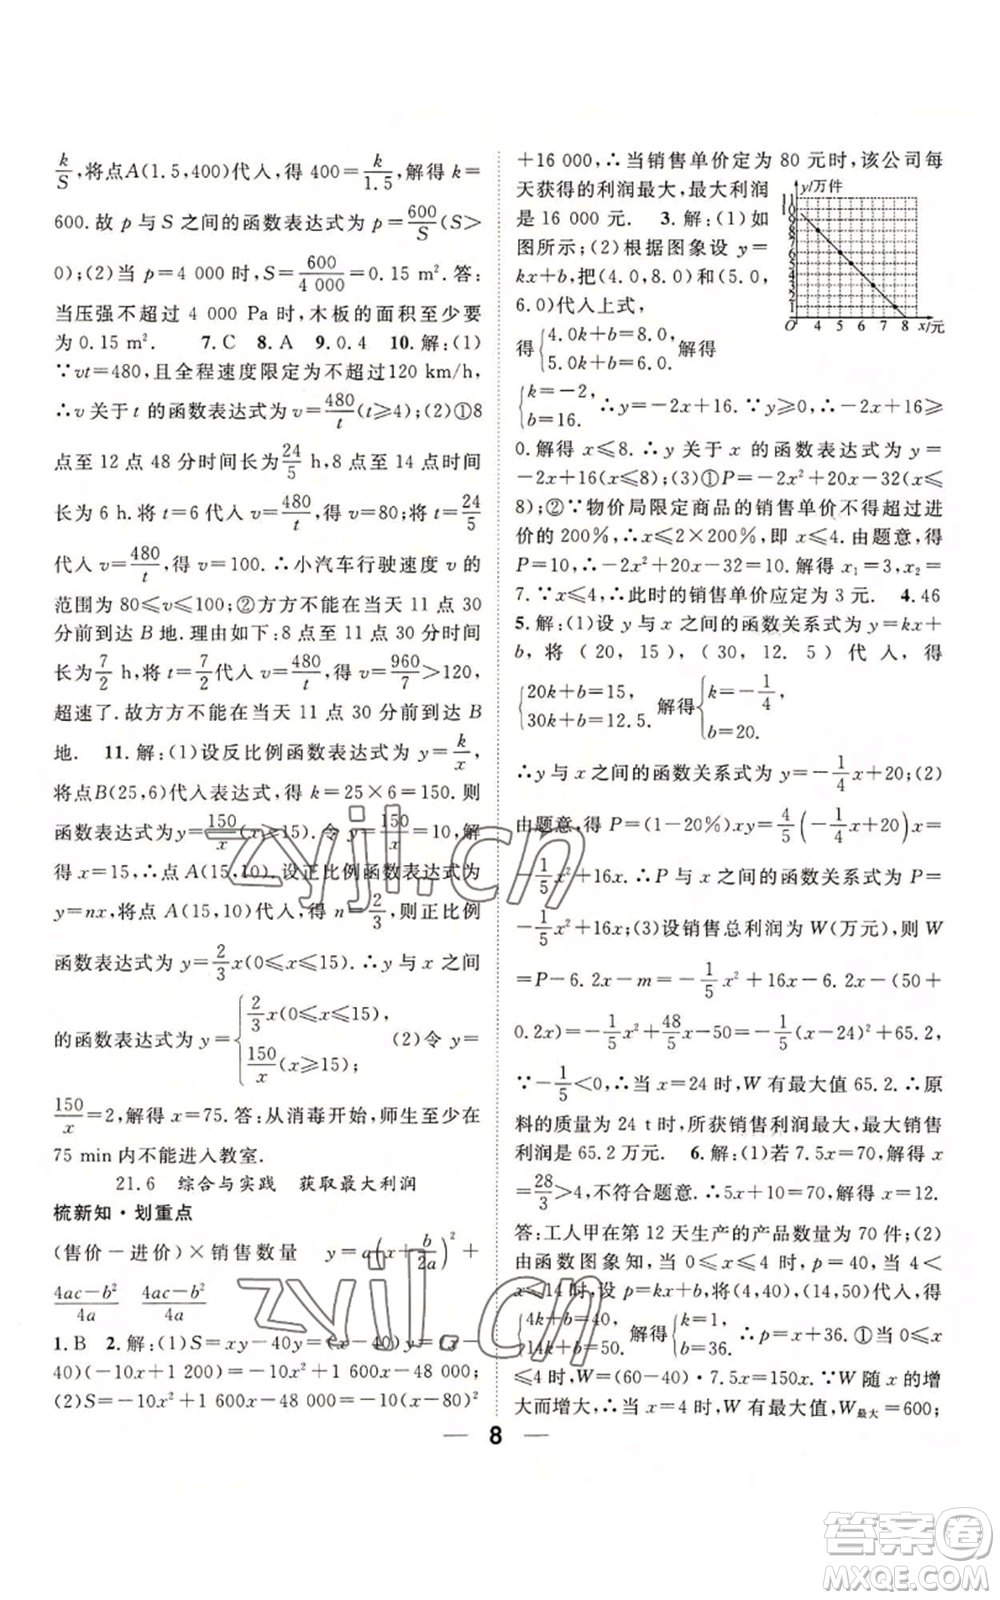 k/S,将点A(1.5,400)代入,得 400=k/1.5,解得 k=
600.故 p 与 S 之间的函数表达式为 p=600/S(S>
0);(2)当 p=4 000 时,S=600/4 000=0.15 m².答:
当压强不超过 4 000 Pa 时,木板的面积至少要
为 0.15 m². 7.C 8.A 9.0.4 10.解:(1)
∵vt=480,且全程速度限定为不超过120 km/h,
∴v 关于 t 的函数表达式为 v=480/t(t≥4);(2)①8
点至 12 点 48 分时间长为 24/5 h,8 点至 14 点时间
长为 6 h.将 t=6 代入 v=480/t,得 v=80;将 t=24/5
代入 v=480/t,得 v=100.∴小汽车行驶速度 v 的
范围为 80≤v≤100;②方方不能在当天 11 点 30
分前到达 B 地.理由如下:8 点至 11 点 30 分时间
长为 7/2 h,将 t=7/2代入 v=480/t,得 v=960/7>120,
超速了.故方方不能在当天 11 点 30 分前到达 B
地. 11.解:(1)设反比例函数表达式为 y=k/x,
将点B(25,6)代入表达式,得 k=25×6=150.则
函数表达式为y=150/x(x≥15).令 y=150/x=10,解
得 x=15,∴点 A(15,10).设正比例函数表达式为
y=nx,将点 A(15,10)代入,得 n=2/3,则正比例
函数表达式为 y=2/3x(0≤x≤15).∴y 与 x 之间
的函数表达式为 y={2/3x(0≤x≤15), 150/x(x≥15); (2)令 y=
150/x=2,解得 x=75.答:从消毒开始,师生至少在
75 min 内不能进入教室.
21.6 综合与实践 获取最大利润
梳新知·划重点
(售价-进价)×销售数量 y=a(x+b/2a)²+
4ac-b²/4a 4ac-b²/4a
1.B 2.解:(1)S=xy-40y=(x-40)y=(x-
40)(-10x+1 200)=-10x²+1 600x-48 000;
(2)S=-10x²+1 600x-48 000=-10(x-80)²
+16 000,∴当销售单价定为 80 元时,该公司每
天获得的利润最大,最大利润
是 16 000 元. 3.解:(1)如
图所示;(2)根据图象设 y=
kx+b,把(4.0,8.0)和(5.0,
6.0)代入上式,
得{4.0k+b=8.0, 5.0k+b=6.0. 解得
{k=-2, b=16. ∴y=-2x+16.∵y≥0,∴-2x+16≥
0.解得 x≤8.∴y 关于 x 的函数表达式为 y=
-2x+16(x≤8);(3)①P=-2x²+20x-32(x≤
8);②∵物价局限定商品的销售单价不得超过进
价的 200%,∴x≤2×200%,即 x≤4.由题意,得
P=10,∴-2x²+20x-32=10.解得 x₁=3,x₂=
7.∵x≤4,∴此时的销售单价应定为 3 元. 4.46
5.解:(1)设 y 与 x 之间的函数关系式为 y=kx+
b,将(20,15),(30,12.5)代入,得
{20k+b=15, 30k+b=12.5. 解得{k=-1/4, b=20.
∴y 与 x 之间的函数关系式为 y=-1/4x+20;(2)
由题意,得 P=(1-20%)xy=4/5(-1/4x+20)x=
-1/5x²+16x.∴P 与 x 之间的函数关系式为 P=
-1/5x²+16x;(3)设销售总利润为 W(万元),则 W
=P-6.2x-m=-1/5x²+16x-6.2x-(50+
0.2x)=-1/5x²+48/5x-50=-1/5(x-24)²+65.2,
∵-1/5<0,∴当 x=24 时,W 有最大值 65.2.∴原
料的质量为 24 t 时,所获销售利润最大,最大销售
利润为 65.2 万元. 6.解:(1)若 7.5x=70,得 x=
28/3>4,不符合题意.∴5x+10=70.解得 x=12.
答:工人甲在第 12 天生产的产品数量为 70 件;(2)
由函数图象知,当 0≤x≤4 时,p=40,当 4<
x≤14 时,设 p=kx+b,将(4,40),(14,50)代入,得
{4k+b=40, 14k+b=50. 解得{k=1, b=36. ∴p=x+36.①当 0≤x
≤4 时,W=(60-40)·7.5x=150x.∵W 随 x 的增
大而增大,∴当 x=4 时,W 有最大值,W最大=600;
y/万件
11
10
9
8
7
6
5
4
3
2
1
O 4 5 6 7 8 x/元
8
zyjl.cn
zyjl.cn
答案卷
MXQE.COM